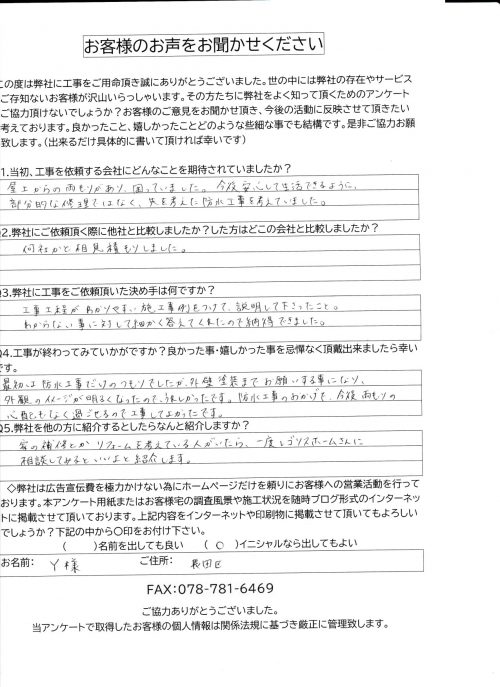 お客様のお声をお聞かせください
この度は弊社に工事をご用命頂き誠にありがとうございました。世の中には弊社の存在やサービス
ご存知ないお客様が沢山いらっしゃいます。その方たちに弊社をよく知って頂くためのアンケート
ご協力頂けないでしょうか？お客様のご意見をお聞かせ頂き、今後の活動に反映させて頂きたい
考えております。良かったこと、嬉しかったことどのような些細な事でも結構です。是非ご協力お願
致します。（出来るだけ具体的に書いて頂ければ幸いです）
1.当初、工事を依頼する会社にどんなことを期待されていましたか？
屋上からの雨もりがあり、困っていました。今後安心して生活できるように、
部分的な修理ではなく、先を考えた防水工事を考えていました。
Q2.弊社にご依頼頂く際に他社と比較しましたか？した方はどこの会社と比較しましたか？
何社かと相見積もりしました。
Q3.弊社に工事をご依頼頂いた決め手は何ですか？
工事工程がわかりやすい施工事例をつけて、説明して下さったこと。
わからない事に対して細かく答えてくれたので納得できました。
Q4.工事が終わってみていかがですか？良かった事・嬉しかった事を忌憚なく頂戴出来ましたら幸い
です。
最初は防水工事だけのつもりでしたが、外壁塗装までお願いする事になり、
外観のイメージが明るくなったので、うれしかったです。防水工事のおかげで、今後雨もりの
心配もなく過ごせるので工事してよかったです。
Q5.弊社を他の方に紹介するとしたらなんと紹介しますか？
家の補修とかリフォームを考えている人がいたら、一度レゴリスホームさんに
相談してみるといいよと紹介します。
◇弊社は広告宣伝費を極力かけない為にホームページだけを頼りにお客様への営業活動を行って
おります。本アンケート用紙またはお客様宅の調査風景や施工状況を随時ブログ形式のインターネッ
トに掲載させて頂いております。上記内容をインターネットや印刷物に掲載させて頂いてもよろしい
でしょうか？下記の中から〇印をお付け下さい。
（　）名前を出しても良い　（ 〇 ）イニシャルなら出してもよい
お名前：　Y様　ご住所：　長田区
FAX:078-781-6469
ご協力ありがとうございました。
当アンケートで取得したお客様の個人情報は関係法規に基づき厳正に管理致します。